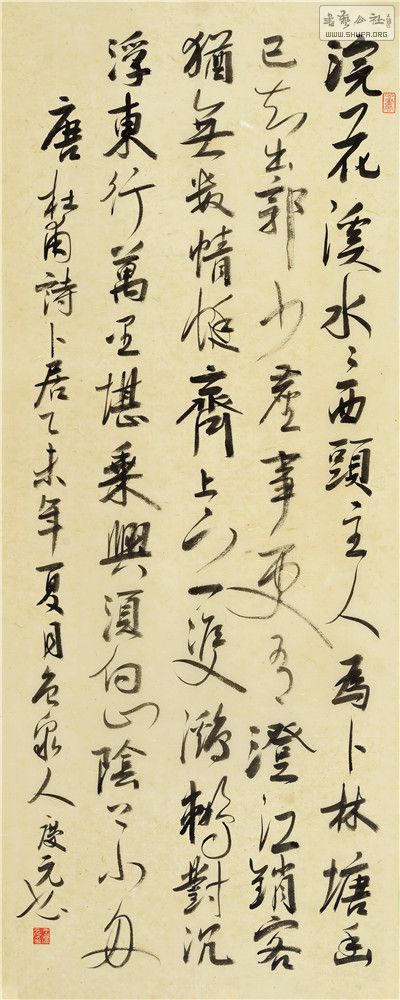 書藝公社
WWW.SHUFA.ORG
浣花溪水〻西頭主人為卜林塘幽
已知出郭少塵事更有澄江銷客
無數蜻蜓齊上下一雙鸂鶒對沉
浮東行萬里堪乘興須向山陰上小舟
唐杜甫詩卜居乙未年夏月泉人慶元